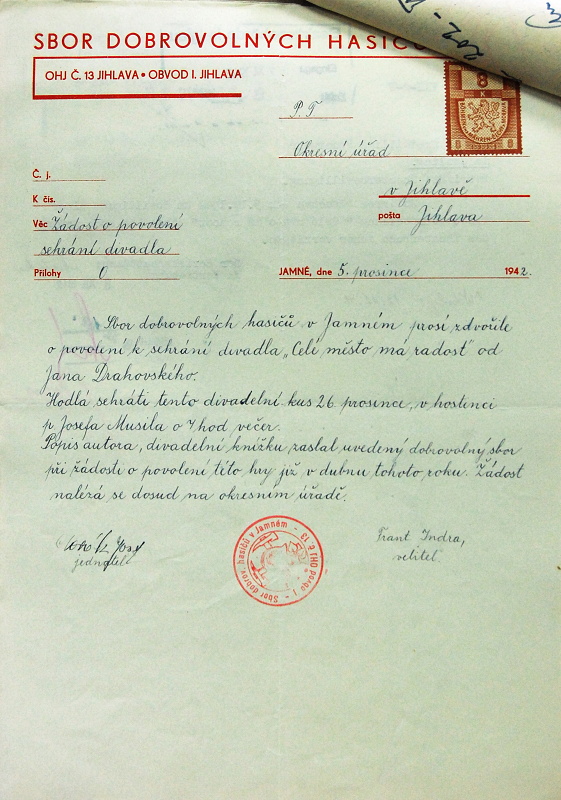 SBOR DOBROVOLNÝCH HASIČŮ
OHJ Č. 13 JIHLAVA • OBVOD I. JIHLAVA
202-
8
K
8 8
P. T.
Okresní úřad
v Jihlavě
pošta Jihlava
Č. j.
K čís.
Věc Žádost o povolení
sehrání divadla
Přílohy 0
JAMNÉ, dne 5. prosince 1942.
Sbor dobrovolných hasičů v Jamném prosí zdvořile
o povolení k sehrání divadla „Celé město má radost" od
Jana Drahovského.
Hodlá sehráti tento divadelní kus 26 prosince, v hostinci
p Josefa Musila o 7 hod večer.
Popis autora, divadelní knížku zaslal uvedený dobrovolný sbor
při žádosti o povolení této hry již v dubnu tohoto roku. Žádost
nalézá se dosud na okresním úřadě.
jednatel
Frant Indra,
velitel
Sbor dobrov. hasičů v Jamném - OHJ č. 13